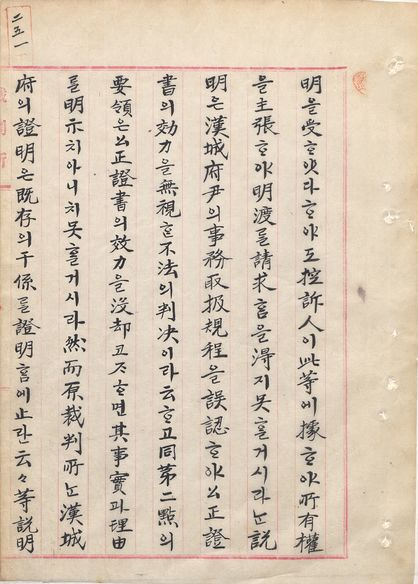 明을受ᄒᆞ얏다ᄒᆞ야도控訴人이此等에據ᄒᆞ야所有權
을主張ᄒᆞ야明渡를請求ᄒᆞᆷ을得지못ᄒᆞᆯ거시라ᄂᆞᆫ說
明은漢城府尹의事務取扱規程을誤認ᄒᆞ야公正證
書의効力을無視ᄒᆞᆫ不法의判决이라云ᄒᆞ고同第二點의
要領은公正證書의效力을沒却고ᄌᆞᄒᆞ면其事實과理由
를明示치아니치못ᄒᆞᆯ거시라然而原裁判所ᄂᆞᆫ漢城
府의證明은既存의干係를證明ᄒᆞᆷ에止란云々等説明
二五一